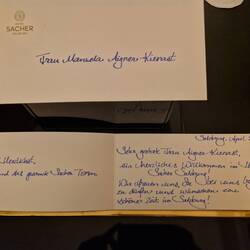 HOTEL
SACHER
SALZBURG
Frau Manuela Aigner-Kienast
Salzburg, April
Sehr geehrte Frau Aigner-Kienast,
ein herzliches Willkommen im
Sacher Salzburg!
Wir freuen uns, Sie hier
zu dürfen und wünschen eine
schöne Zeit in Salzburg!
Herzlichst,
und das gesamte Sacher Team